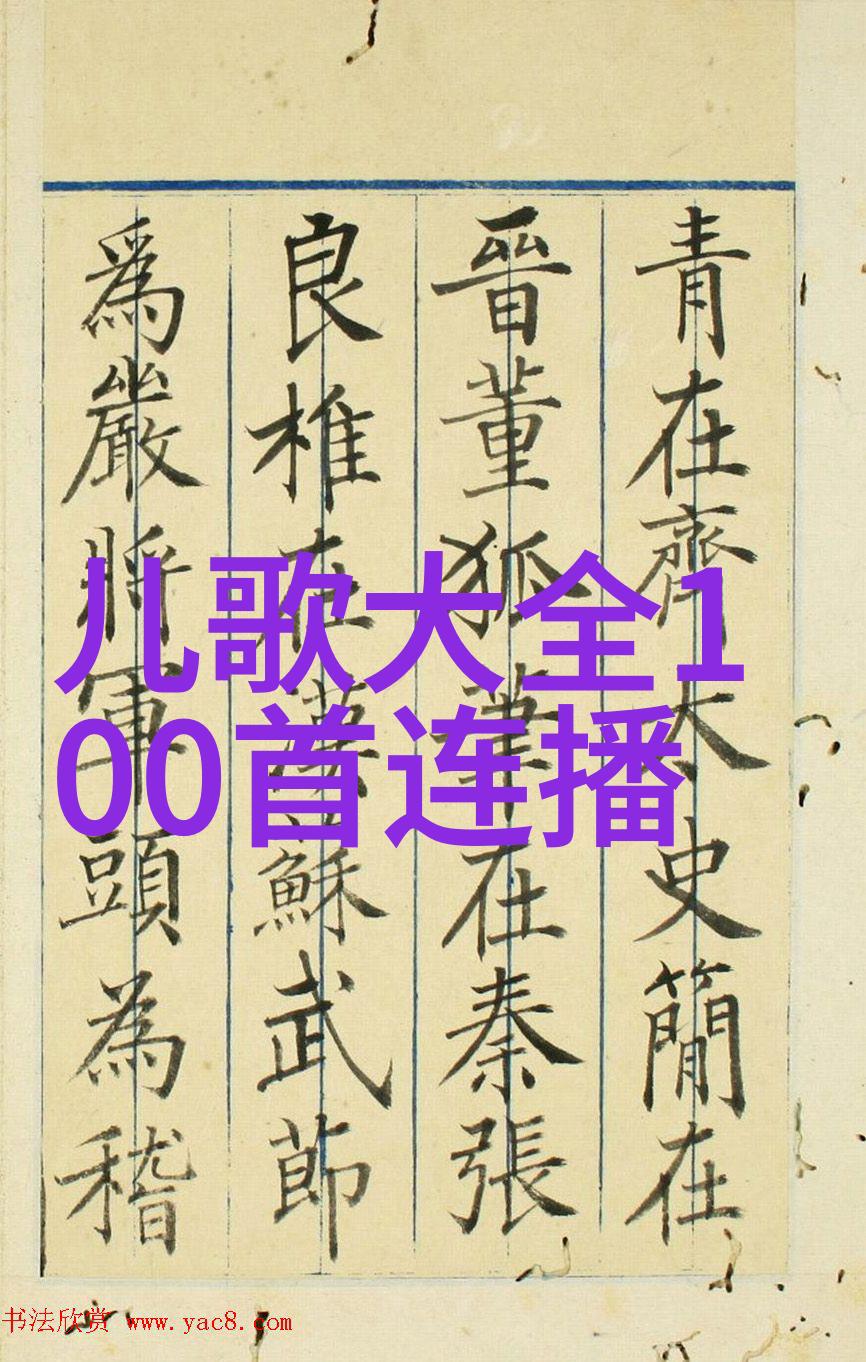 青在齊太史簡在
晉董狐筆在秦張
良椎在漢蘇武節
為嚴將軍頭為嵇
儿歌大全1
00首连播
书法欣赏 www.yac8.com